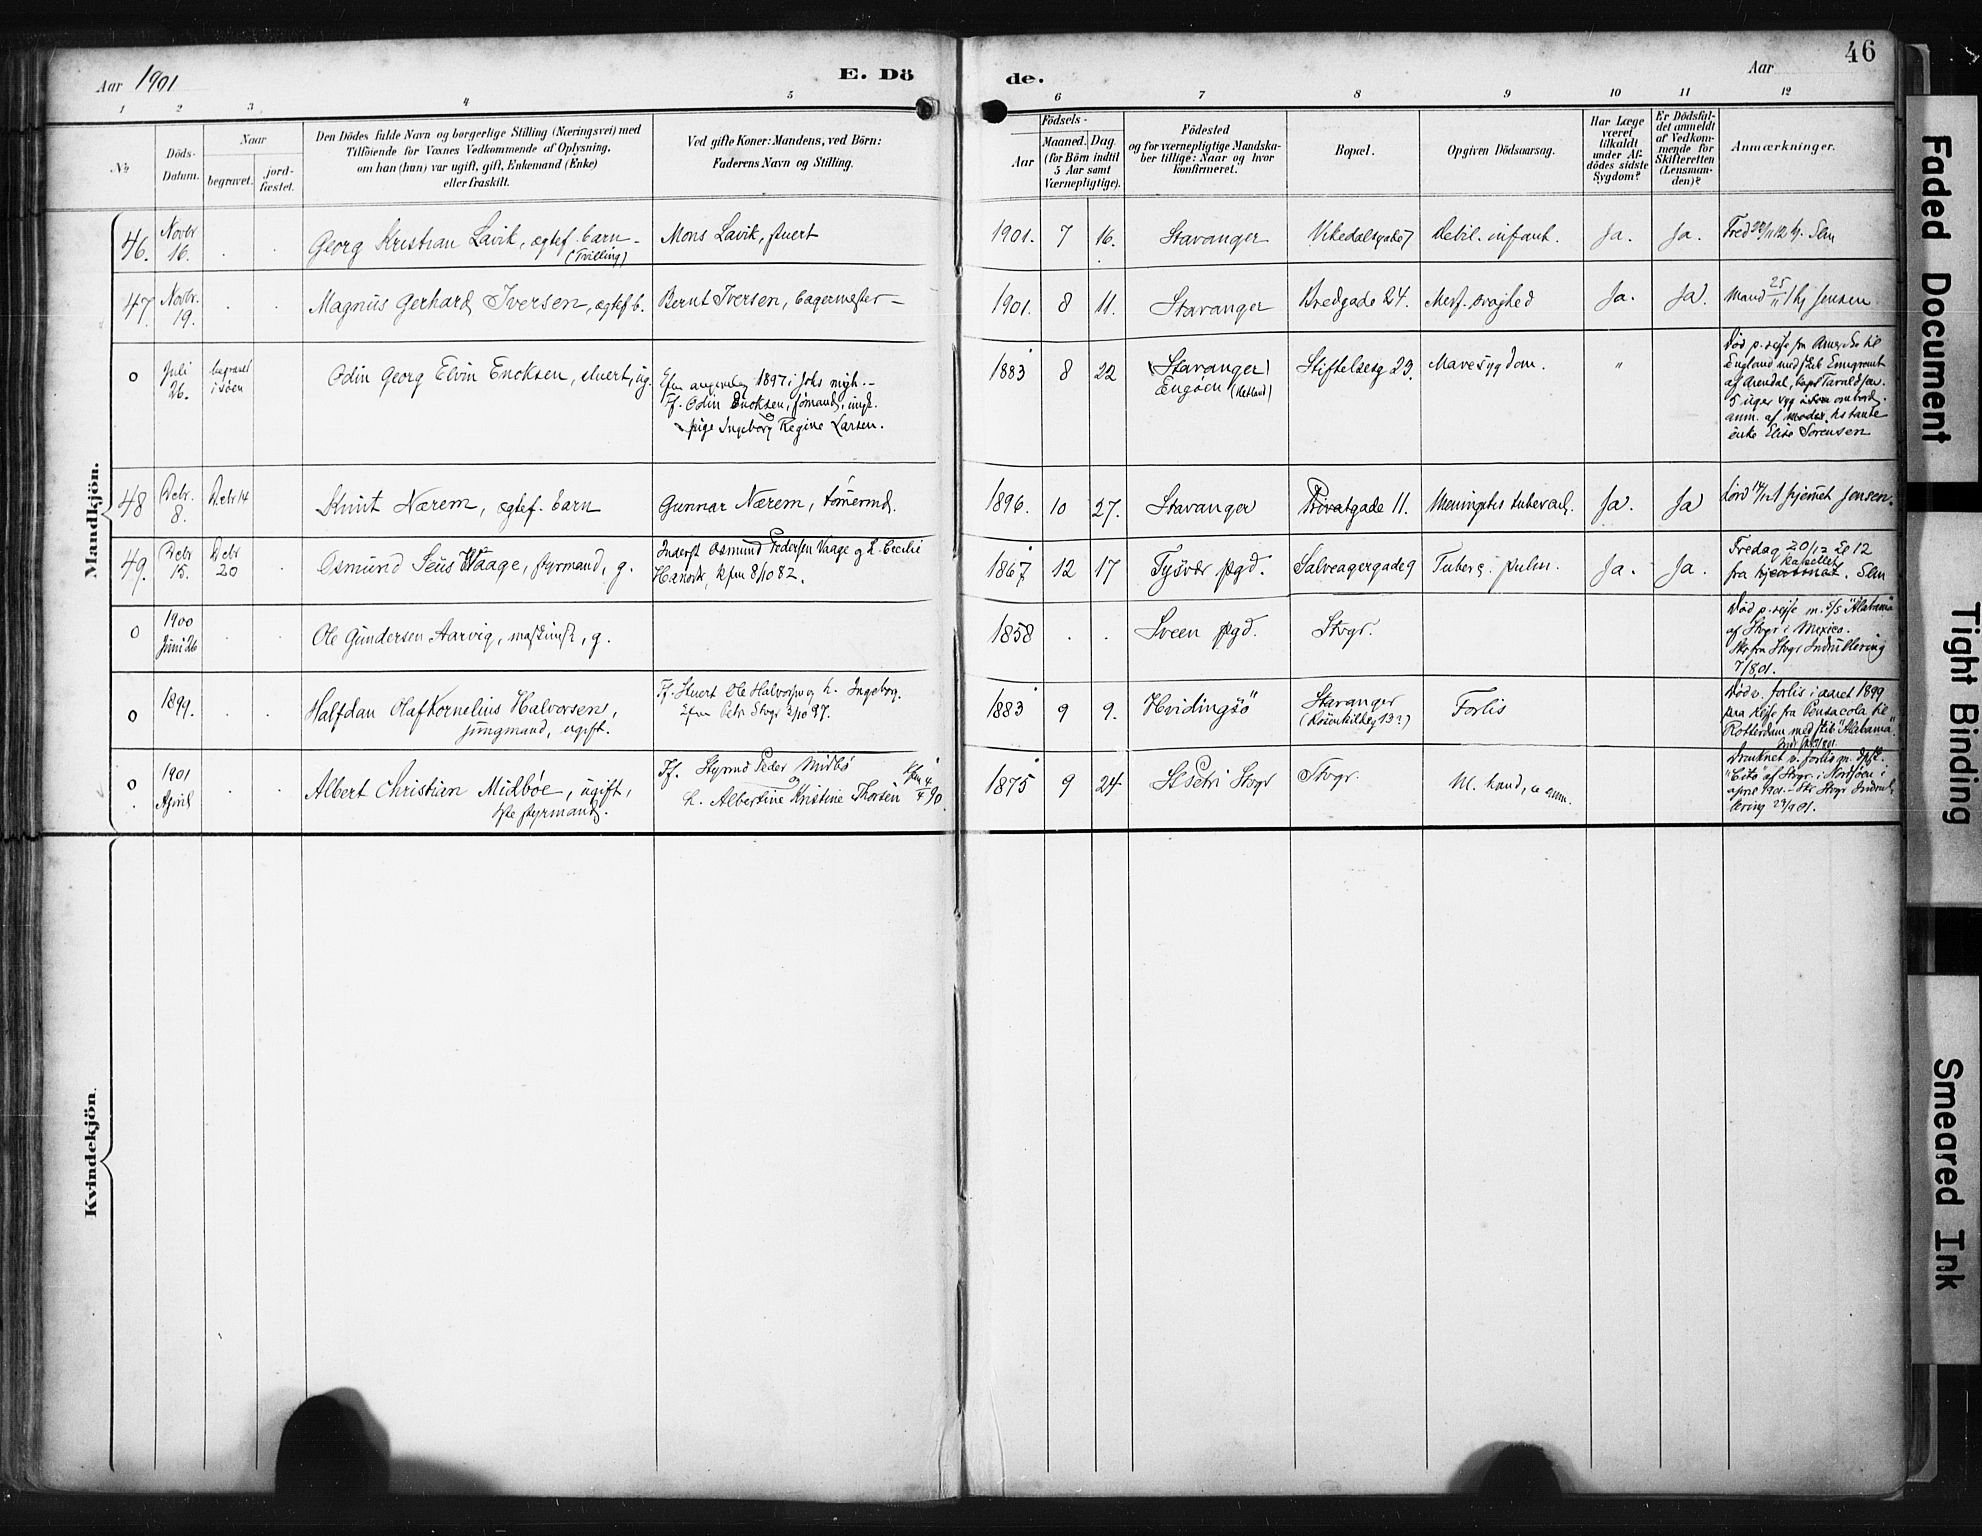 Aar 1901
E. Dö
de.
Aar
46
1 2 3 4 5 6 7 8 9 10 11 12
No
Döds-Datum.
Naar
begravet.
jord-fæstet.
Den Dödes fulde Navn og borgerlige Stilling (Næringsvei) med
Tilföiende for Voxnes Vedkommende af Oplysning,
om han (hun) var ugift, gift, Enkemand (Enke)
eller fraskilt.
Ved gifte Koner: Mandens, ved Börn:
Faderens Navn og Stilling.
Födsels-
Aar
Maaned. Dag.
(for Börn indtil
5 Aar samt
Værnepligtige).
Födested
og for værnepligtige Mandska-
ber tillige: Naar og hvor
konfirmeret.
Bopæl.
Opgiven Dödsaarsag.
Har Læge
været
tilkaldt
under Af-
dödes sidste
Sygdom?
Er Dödsfal-
det anmeldt
af Vedkom-
mende for
Skifteretten
(Lensman-
den)?
Anmærkninger.
Mandkjön.
46. Novbr 16. Georg Kristian Lavik, ægtef. barn -
(Tvilling)
Mons Lavik, stuert
1901. 7 16. Stavanger Vikedalsgade 7 Debil. infant. Ja. Ja.
47. Novbr. 19. Magnus Gerhard Iversen, ægtef. b.
Bernt Iversen, bagermester -
1901. 8 11. Stavanger Bredgade 24. Medf. svaghed Ja. Ja. Mand 25/11 1 hj Jensen
0 Juli 26. begravet i søen Odin Georg Elvin Ericksen, stuert, ug.
1897 i Joh's
F. Odin Ericksen, sømand,
pige Ingeborg Regine Larsen.
1883 8 22 Stavanger
Engøen (Hetland)
Stiftelsesg 23. Mavesygdom. "
Død p. rejse fra Amerika til
England med skib Emigrant
af Arendal, kapt Taraldsen.
5 uger syg ombord.
anm. af moder, hs tante
enke Elise Sørensen
48 Debr. 8. Debr 14 Knut Nærem, ægtef. barn
Gunnar Nærem, tømermd.
1896. 10 27. Stavanger Privatgade 11. Meningitis tubercul. Ja. Ja Lørd 14/12 1 hjemet Jensen.
49. Debr 15. Debr 20 Osmund Seus Vaage, styrmand, g.
Inderst Osmund Pedersen Vaage og h. Cecilie
Hansdr, kfm 8/10 82.
1867 12 17 Tysvær pgd. Salveagergade 9 Tuberc. pulm. Ja. Ja.
Fredag 20/12 kl 12
kapellet
fra hjemmet. Slm
0 1900 Juni 26 Ole Gundersen Aarvig, maskinist, g.
1858 Sveen pgd. Stvgr.
Død p. rejse m. S/S "Alabama"
af Stvgr i Mexico.
Skr fra Stvgr Indrullering
7/8 01.
0 1899. Halfdan Olaf Kornelius Halvorsen,
jungmand, ugift.
Ff. Stuert Ole Halvorsen og h. Ingeborg.
Petri Stvgr 3/10 97.
1883 9 9. Hvidingsö Stavanger
Forlis
Død v. forlis i aaret 1899
paa Rejse fra Pensacola til
Rotterdam med skib "Alabama"
0 1901 April Albert Christian Midbøe, ugift,
styrmand.
Ff. Styrmd Peder Midbö
h. Albertine Kristine Thorsen Kfm 4/4 90.
1875 9 24 St Petri Stvgr Stvgr. M. hand, se anm.
Druknet v. forlis m.
af Stvgr. i Nordsøen i
april 1901. - Skr Stvgr Indrul-
lering 27/9 01.
Kvindekjön.
Faded Document
Tight Binding
Smeared Ink